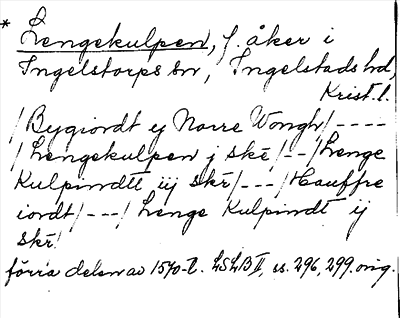 * Lengekulpen, f. åker i
Ingelstorps sn, Ingelstads hd,
Krist. l.
/Bygiordt ej Norre Wongh/----
/Lengekulpen j skē/--/Lenge
Kulpindtt iij skē/---/Hauffre
iordt/---/Lenge Kulpindt ij
skē/
förra delen av 1570-t. LSLB II, ss. 296, 299. orig.